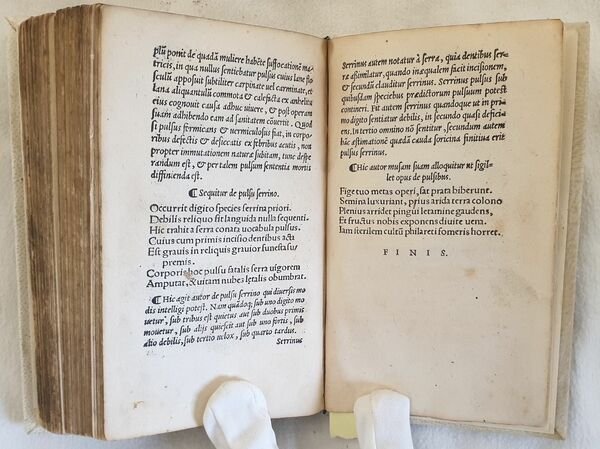 plū ponit de quadā muliere habēte suffocationē ma-
tricis, in qua nullus sentiebatur pulsus cuius lane flo
sculū apposuit subtiliter carpinate uel carminate, et
lana aliquantulū commota & calefacta ex anhelitu
eius cognouit causā adhuc uiuere, & post operam
suam adhibendo eam ad sanitatem cōuertit. Quod
si pulsus formicans & uermiculosus fiat, in corpo-
ribus defectis & desiccatis ex febribus acutis, non
propter immutationem naturæ subitam, tunc despe
randum est, & per talem pulsum sententia mortis
diffiniendā est.
¶ Sequitur de pulsu serrino.
Occurrit digito species serrina priori.
Debilis reliquo sit languida nulla sequenti.
Hic trahit a serra conata uocabula pulsus.
Cuius cum primis incisio dentibus acta
Est grauis in reliquis grauior funesta su-
premis.
Corporis hoc pulsu fatalis serra uigorem
Amputat, & uitam nubes letalis obumbrat.
¶ Hic agit autor de pulsu serrino qui diuersis mo
dis intelligi potest. Nam quādoq; sub uno digito mo
uetur, sub tribus est quietus aut sub duobus primis
mouetur, sub alijs quiescit aut sub uno fortis, sub
alio debilis, sub tertio uelox, sub quarto tardus.
Serrinus
Serrinus autem notatur à serra, quia dentibus ser-
ræ assimilatur, quando inæqualem facit incisionem,
& secundū clauditur serrinus. Serrinus pulsus sub
quibusdam speciebus prædictorum pulsuum potest
contineri. Fit autem serrinus quandoque ut in pri-
mo digito sentiatur debilis, in secundo quasi defici-
ens. In tertio omnino nō sentitur, secundum autem
hic æstimationē quādā cauda soricina fiat serrinus
pulsus serrinus.
¶ Hic autor musam suam alloquitur ut sigil-
let opus de pulsibus.
Fige tuo metas operi, sat prata biberunt.
Semina luxuriant, prius arida terra colono
Plenius arridet pingui letamine gaudens,
Et fructus nobis exponens diuite uena.
Iam sterilem cultū philareti fomeris horret.
FINIS.